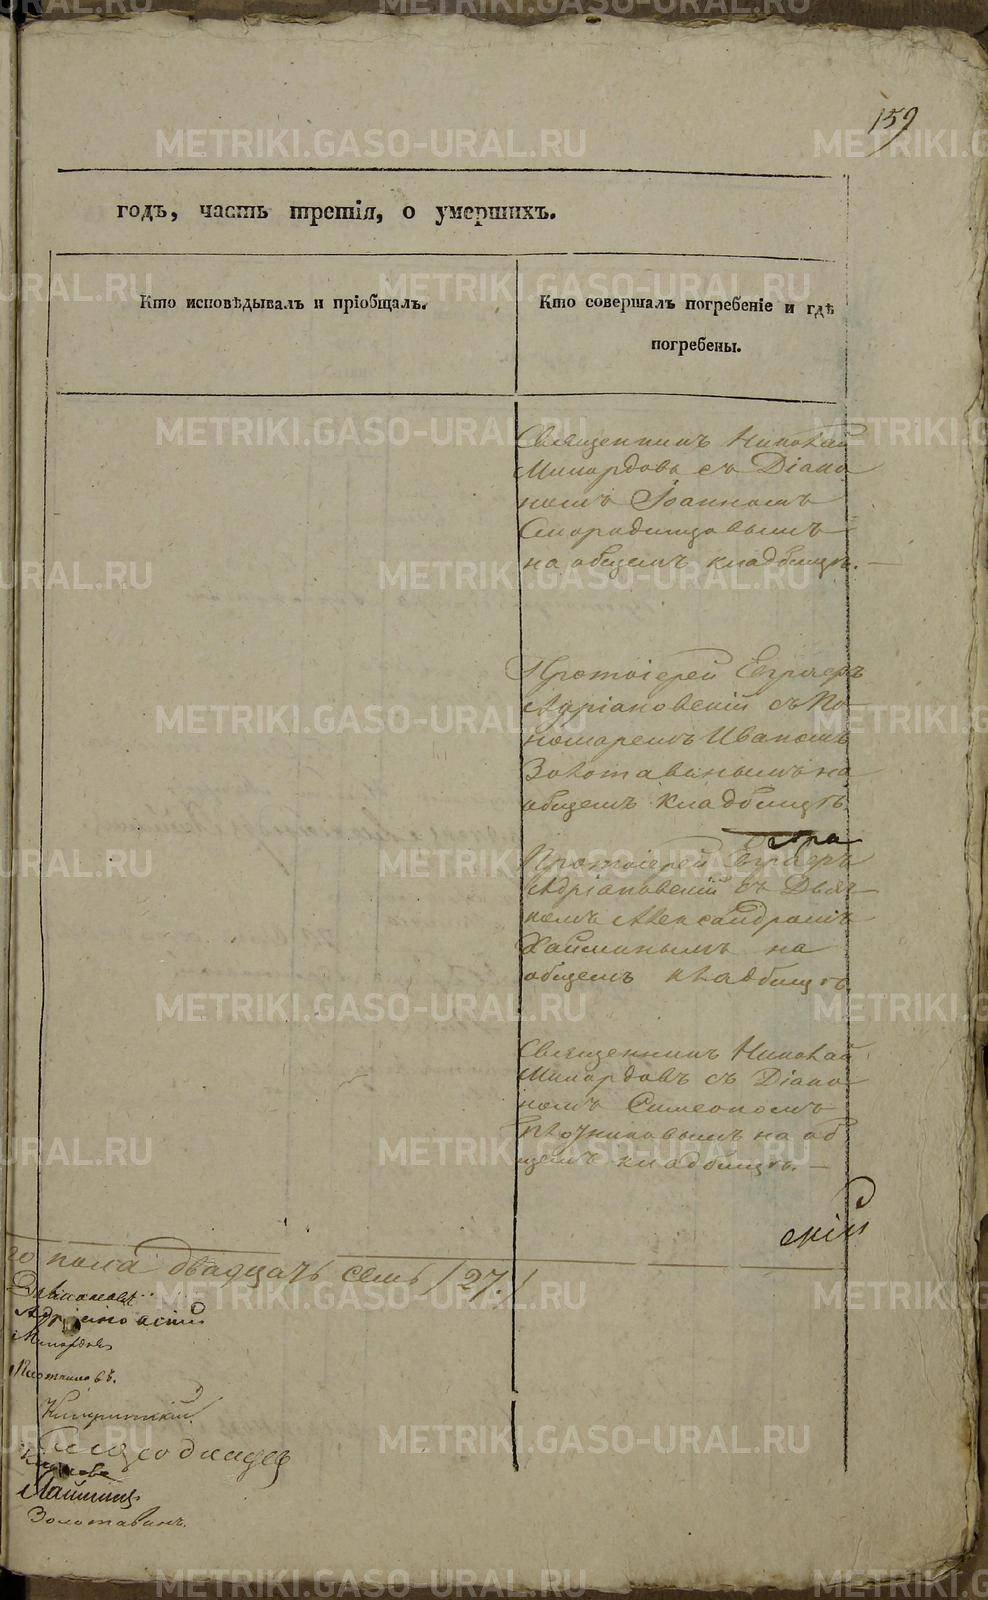 159
годъ, часть третія, о умершихъ.
Кто исповѣдывалъ и пріобщалъ.
Кто совершалъ погребеніе и гдѣ
погребены.
Священникъ Николай
Милордовъ съ Діако
номъ Іоанномъ
Смородинцовымъ
на общемъ кладбищѣ.
Протоіерей Евграфъ
Адріановскій съ По-
номаремъ Иваномъ
Золотавинымъ на
общемъ кладбищѣ.
Протоіерей Евграфъ
Адріановскій съ Дья-
номъ Александромъ
на
общемъ кладбищѣ.
Священникъ Николай
Милордовъ съ Діако
номъ Симеономъ
Плотниковымъ на об
щемъ кладбищѣ.
скій
го пола двадцать семь /27./
Адріановскій
Милордовъ
Плотниковъ.
Смородинцовъ
Золотавинъ.
METRIKI.GASO-URAL.RU